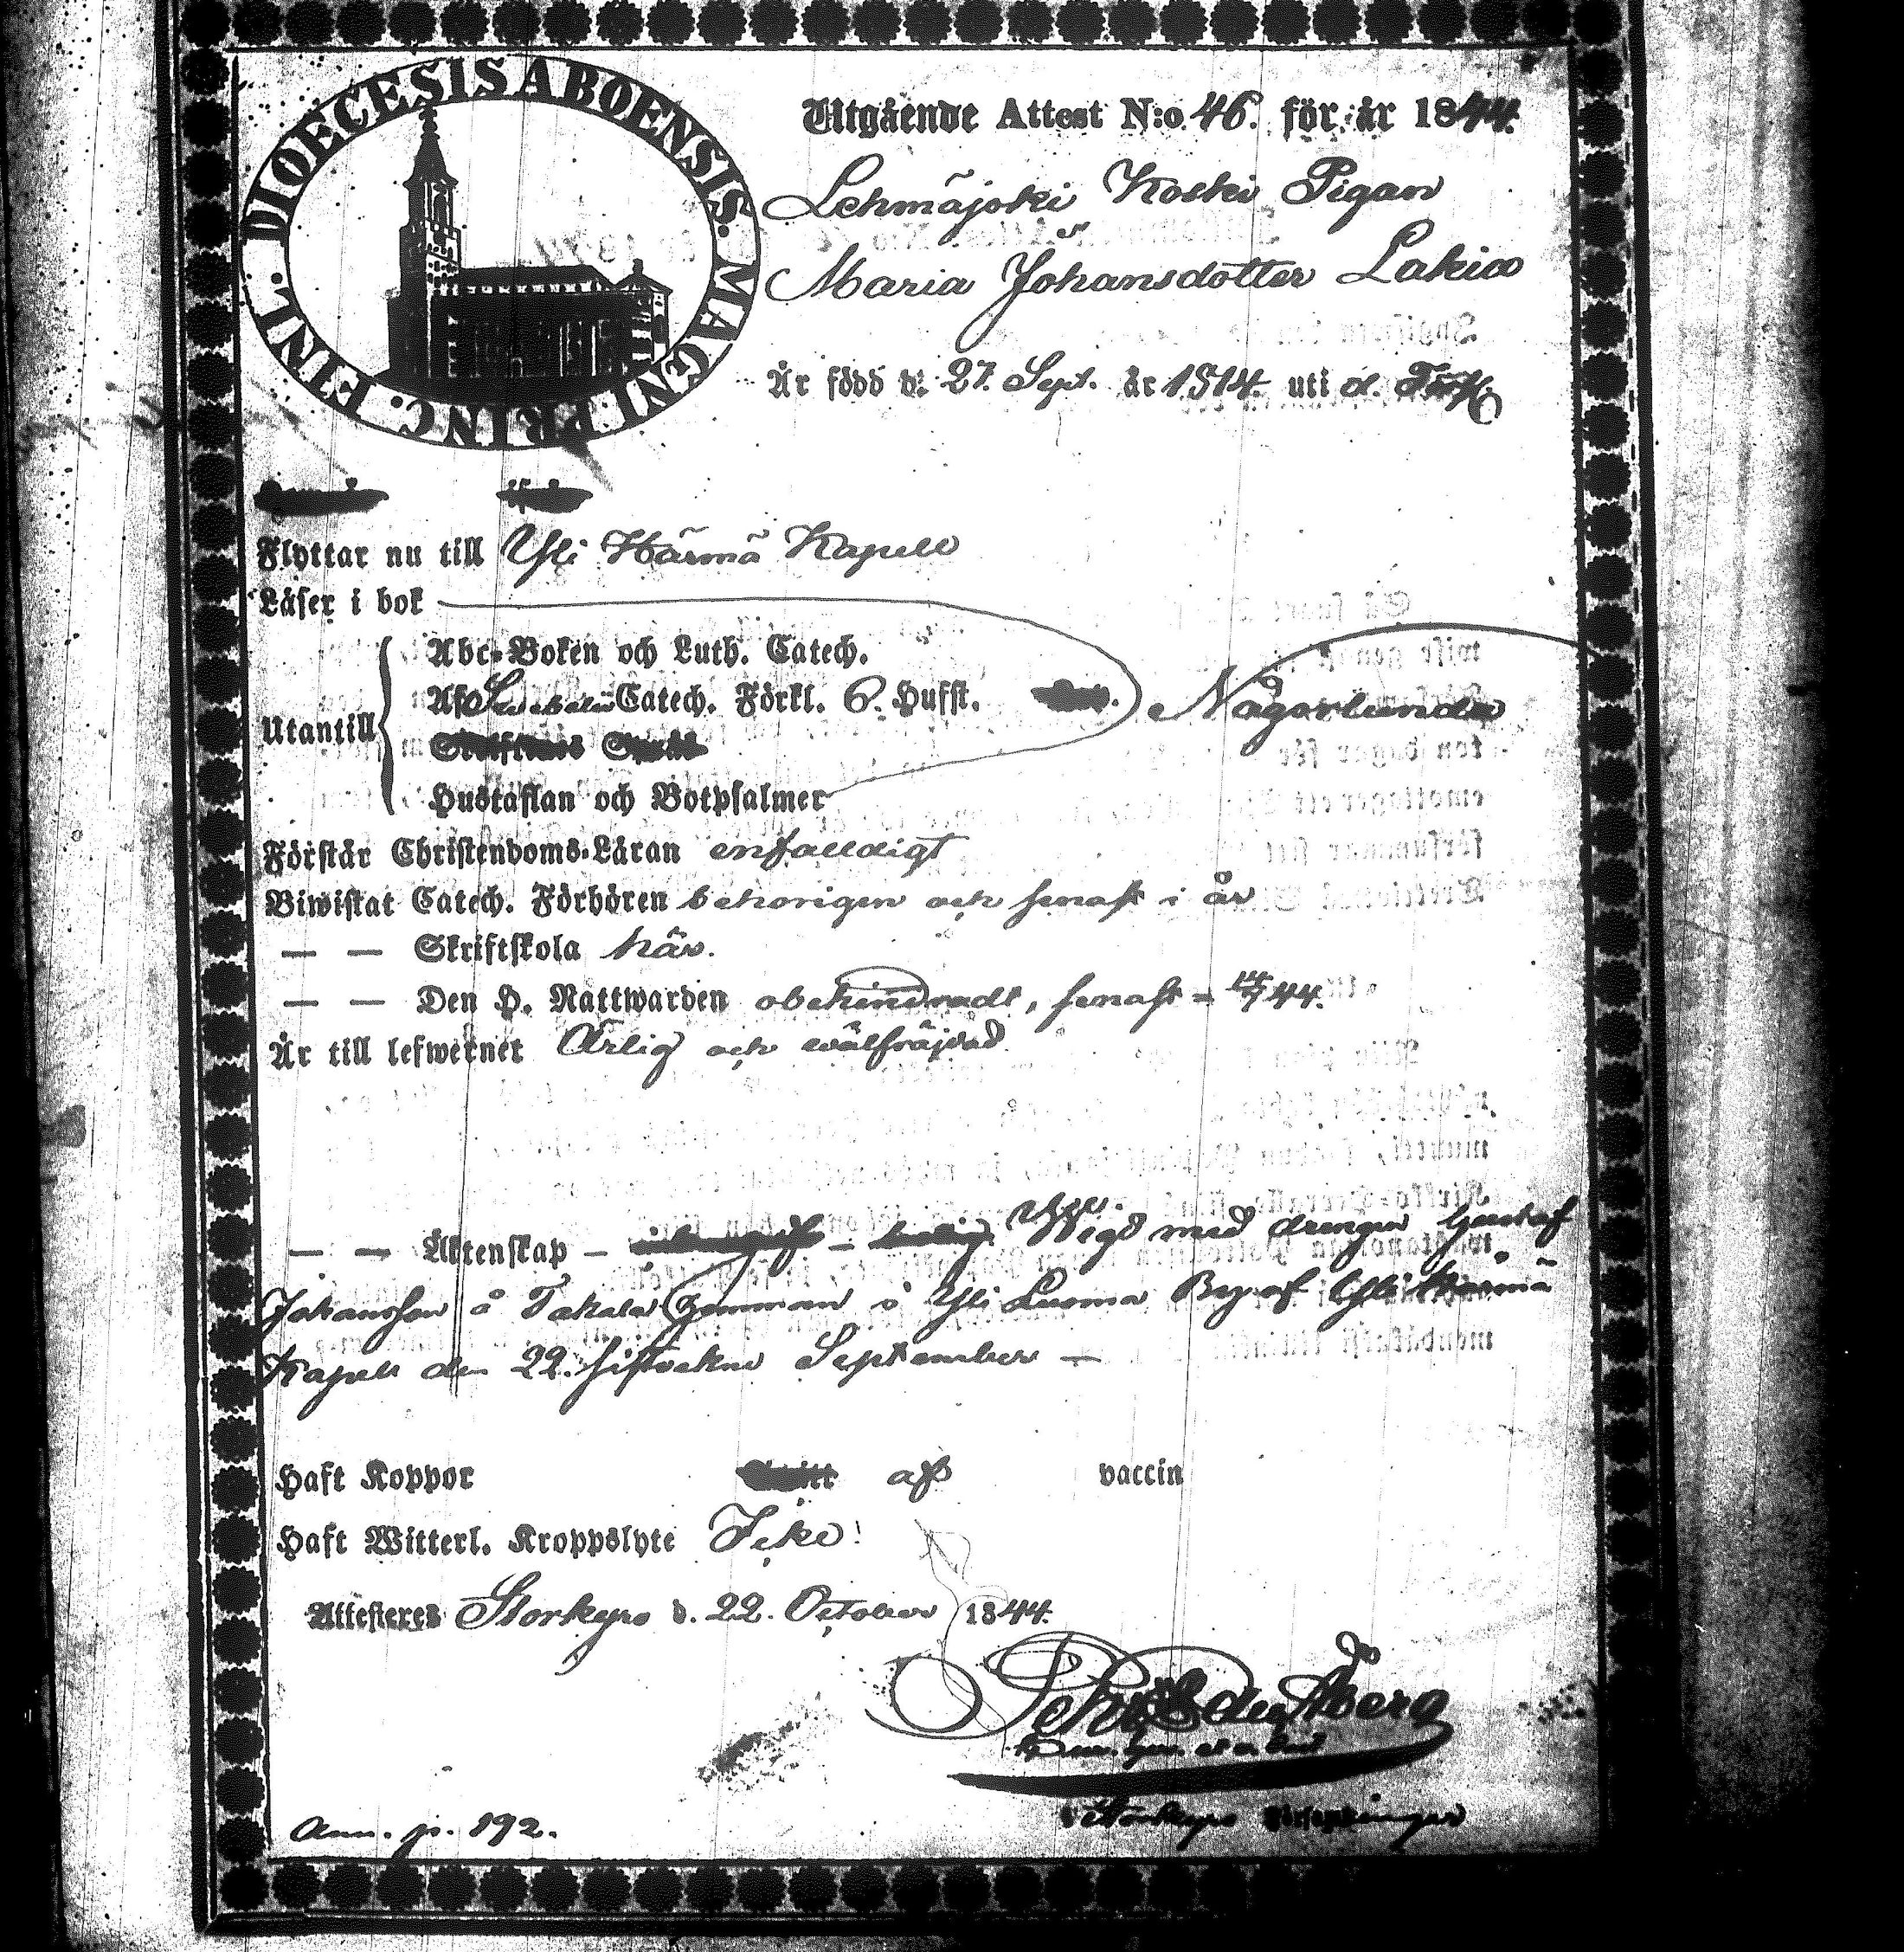 DIOECESIS ABOENSIS. MAGNI PRINC. FINL.
Utgående Attest N:o 46. för år 1844.
Lehmäjoki Koski Pigan
Maria Johansdotter Lakia
Är född d: 27. Sept. år 1814. uti d.
Flyttar nu till Yli Härmä Kapell
Läser i bok
Abc-Boken och Luth. Catech.
Utantill Af Svebelii Catech. Förkl. 6. Hufst. Någorlunda
Hustaflan och Botpsalmer
Förstår Christendoms-Läran enfalldigt
Biwistat Catech. Förhören behörigen och senast i år
— — Skriftskola här.
— — Den H. Nattwarden obehindradt, senast 44.
Är till lefwernet Ärlig och wälfräjdad
— — Äktenskap — Wigd med drengen Gustaf
Johansson å Takala hemman i Yli Luoma By af Yli Härmä
Kapell den 22. sistvekne September —
Haft Koppor af vaccin
Haft Witterl. Kroppslyte Icke!
Attesteres Storkyro d. 22. October 1844.
Storkyro Församlingar
Ann. p. 192.